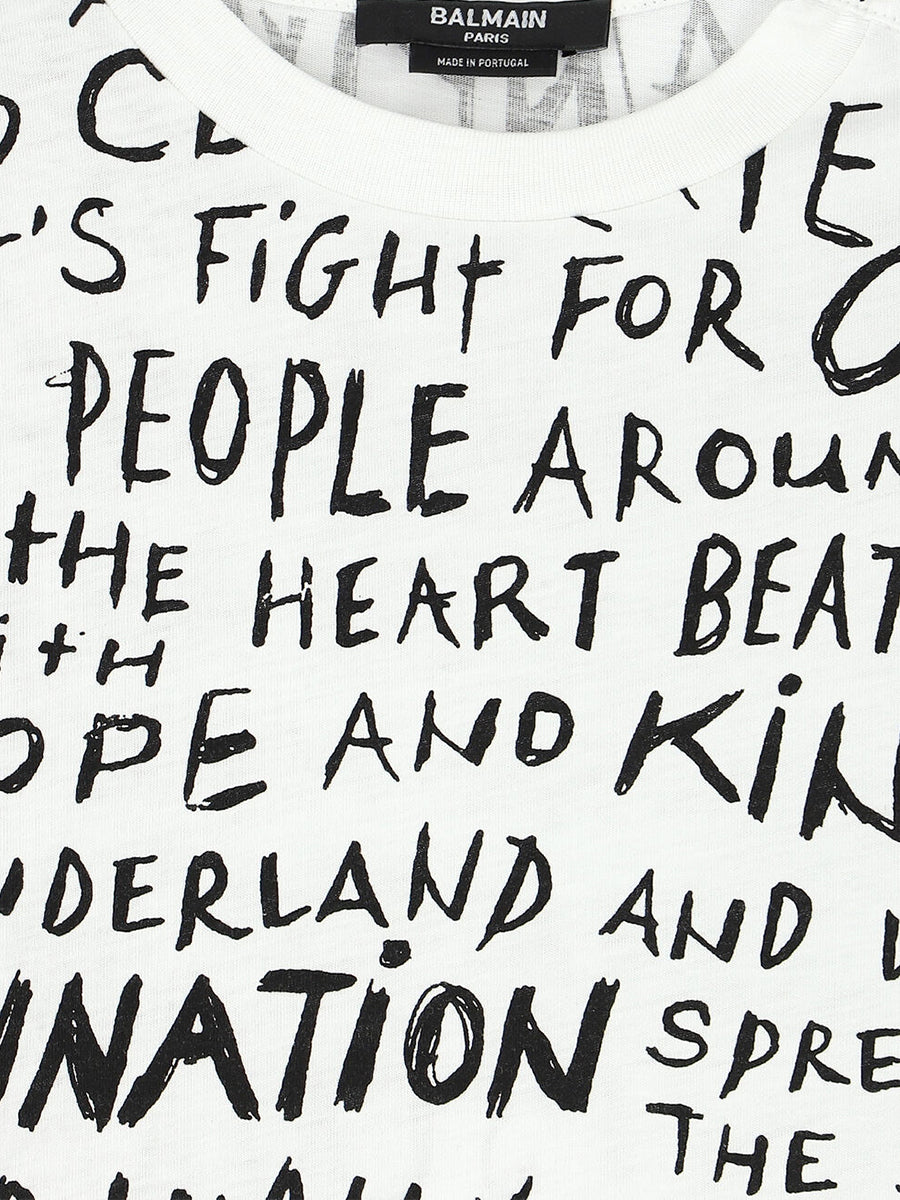 BALMAIN
PARIS
MADE IN PORTUGAL
'S FiGHt FOR
PEOPLE AROUN
tHE HEART BEAT
itH
OPE AND KiN
DERLAND AND
NATiON SPRE
THE